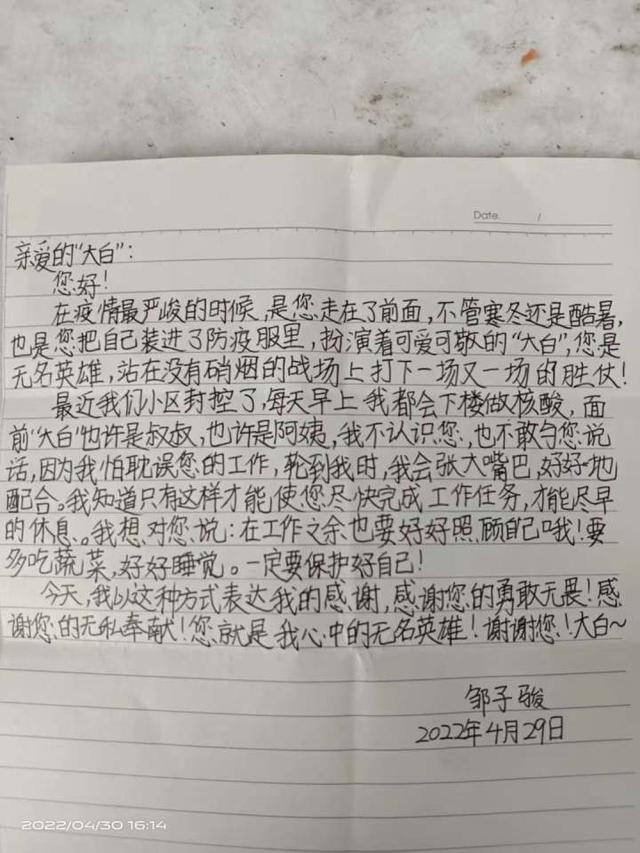 Date. /
亲爱的“大白”:
您好!
在疫情最严峻的时候,是您走在了前面,不管寒冬还是酷暑,
也是您把自己装进了防疫服里,扮演着可爱可敬的“大白”,您是
无名英雄,站在没有硝烟的战场上打下一场又一场的胜仗!
最近我们小区封控了,每天早上我都会下楼做核酸,面
前“大白”也许是叔叔,也许是阿姨,我不认识您,也不敢与您说
话,因为我怕耽误您的工作,轮到我时,我会张大嘴巴,好好地
配合。我知道只有这样才能使您尽快完成工作任务,才能尽早
的休息。我想对您说:在工作之余也要好好照顾自己哦!要
多吃蔬菜,好好睡觉。一定要保护好自己!
今天,我以这种方式表达我的感谢,感谢您的勇敢无畏!感
谢您的无私奉献!您就是我心中的无名英雄!谢谢您!大白~
邹子骏
2022年4月29日
2022/04/30 16:14